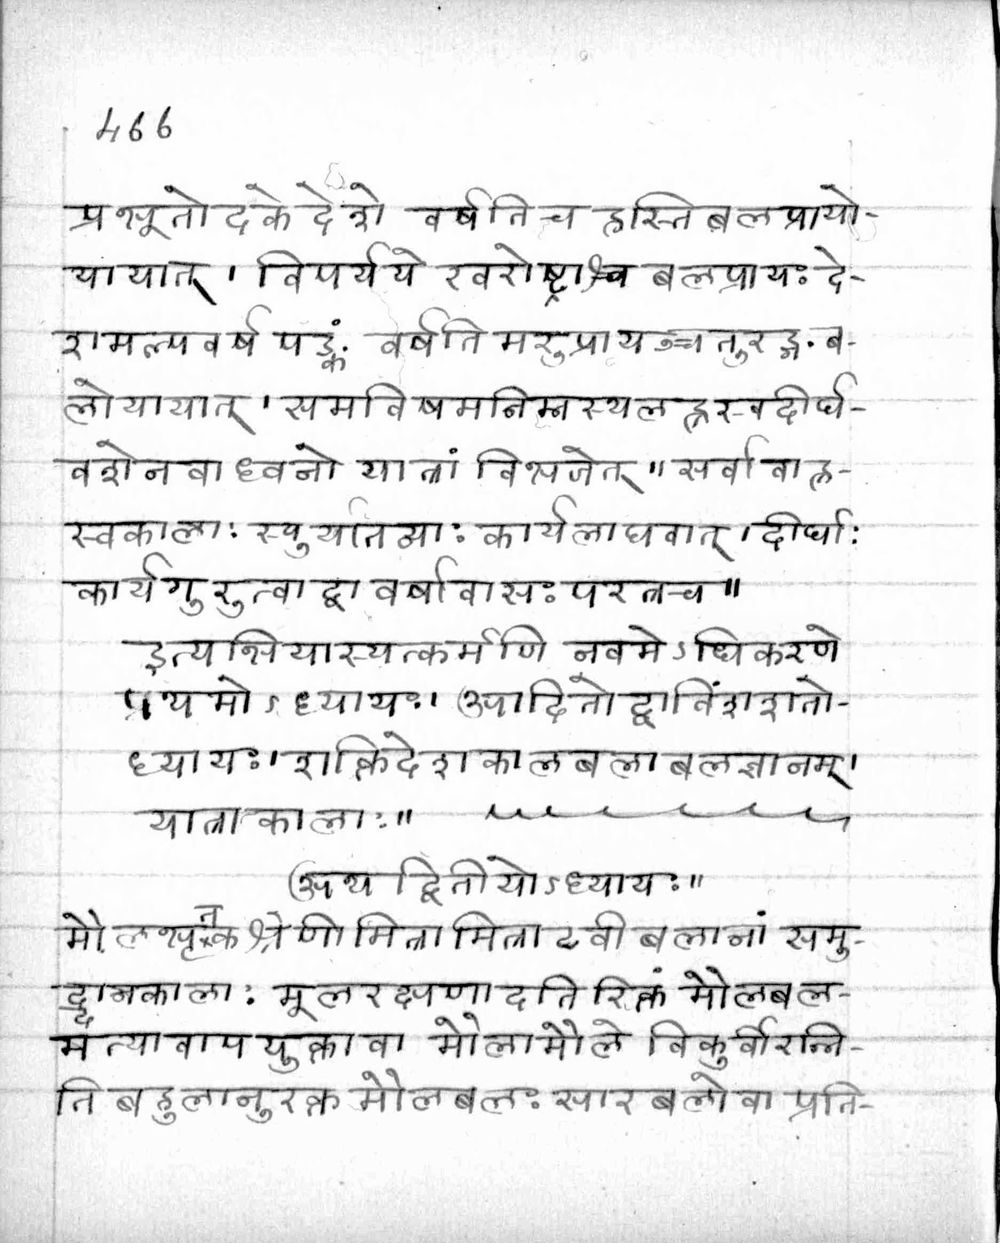 466
प्रभूतोदके देशे वर्षति च हस्तिबलप्रायो-
यायात् । विपर्यये खरोष्ट्राश्व बलप्रायः दे-
शमल्पवर्षपङ्कं वर्षति मरुप्रायञ्चतुरङ्ग.ब-
लोयायात् । समविषमनिम्नस्थलह्रस्वदीर्घ-
वशेन वाध्वनो यात्रां विभजेत् ॥ सर्वा वा ह्र-
स्वकालाः स्युर्यातव्याः कार्यलाघवात् । दीर्घाः
कार्यगुरुत्वाद्वा वर्षावासः परत्र च ॥
इत्यभियास्यत्कर्मणि नवमेऽधिकरणे
प्रथमोऽध्यायः । आदितो द्वाविंशशतो-
ध्यायः । शक्तिदेशकालबलाबलज्ञानम् ।
यात्राकालाः ॥
अथ द्वितीयोऽध्यायः ॥
मौलभृतकश्रेणीमित्रामित्राटवीबलानां समु-
द्दानकालाः मूलरक्षणादतिरिक्तं मौलबल-
मत्यावापयुक्ता वा मौलामौले विकुर्वीरन्नि-
ति बहुलानुरक्त मौलबलः सारबलो वा प्रति-